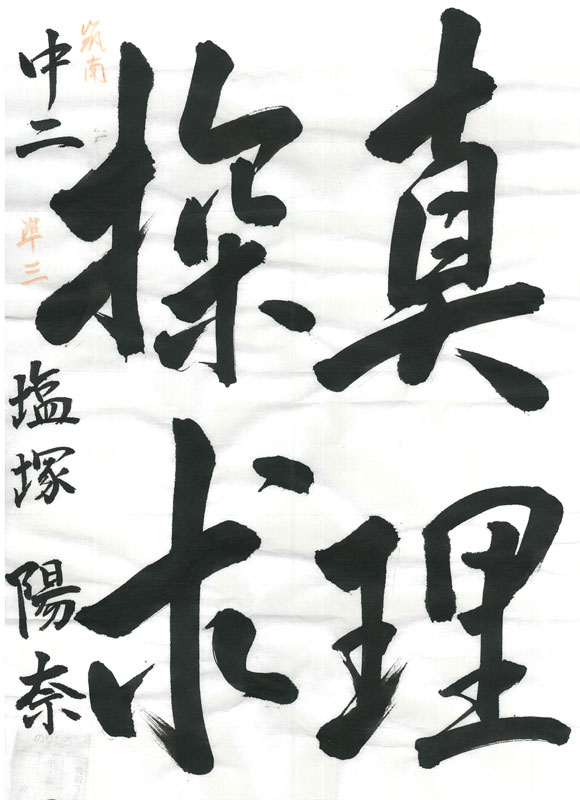 真理
探求
中二
塩塚 陽奈
筑南
準三